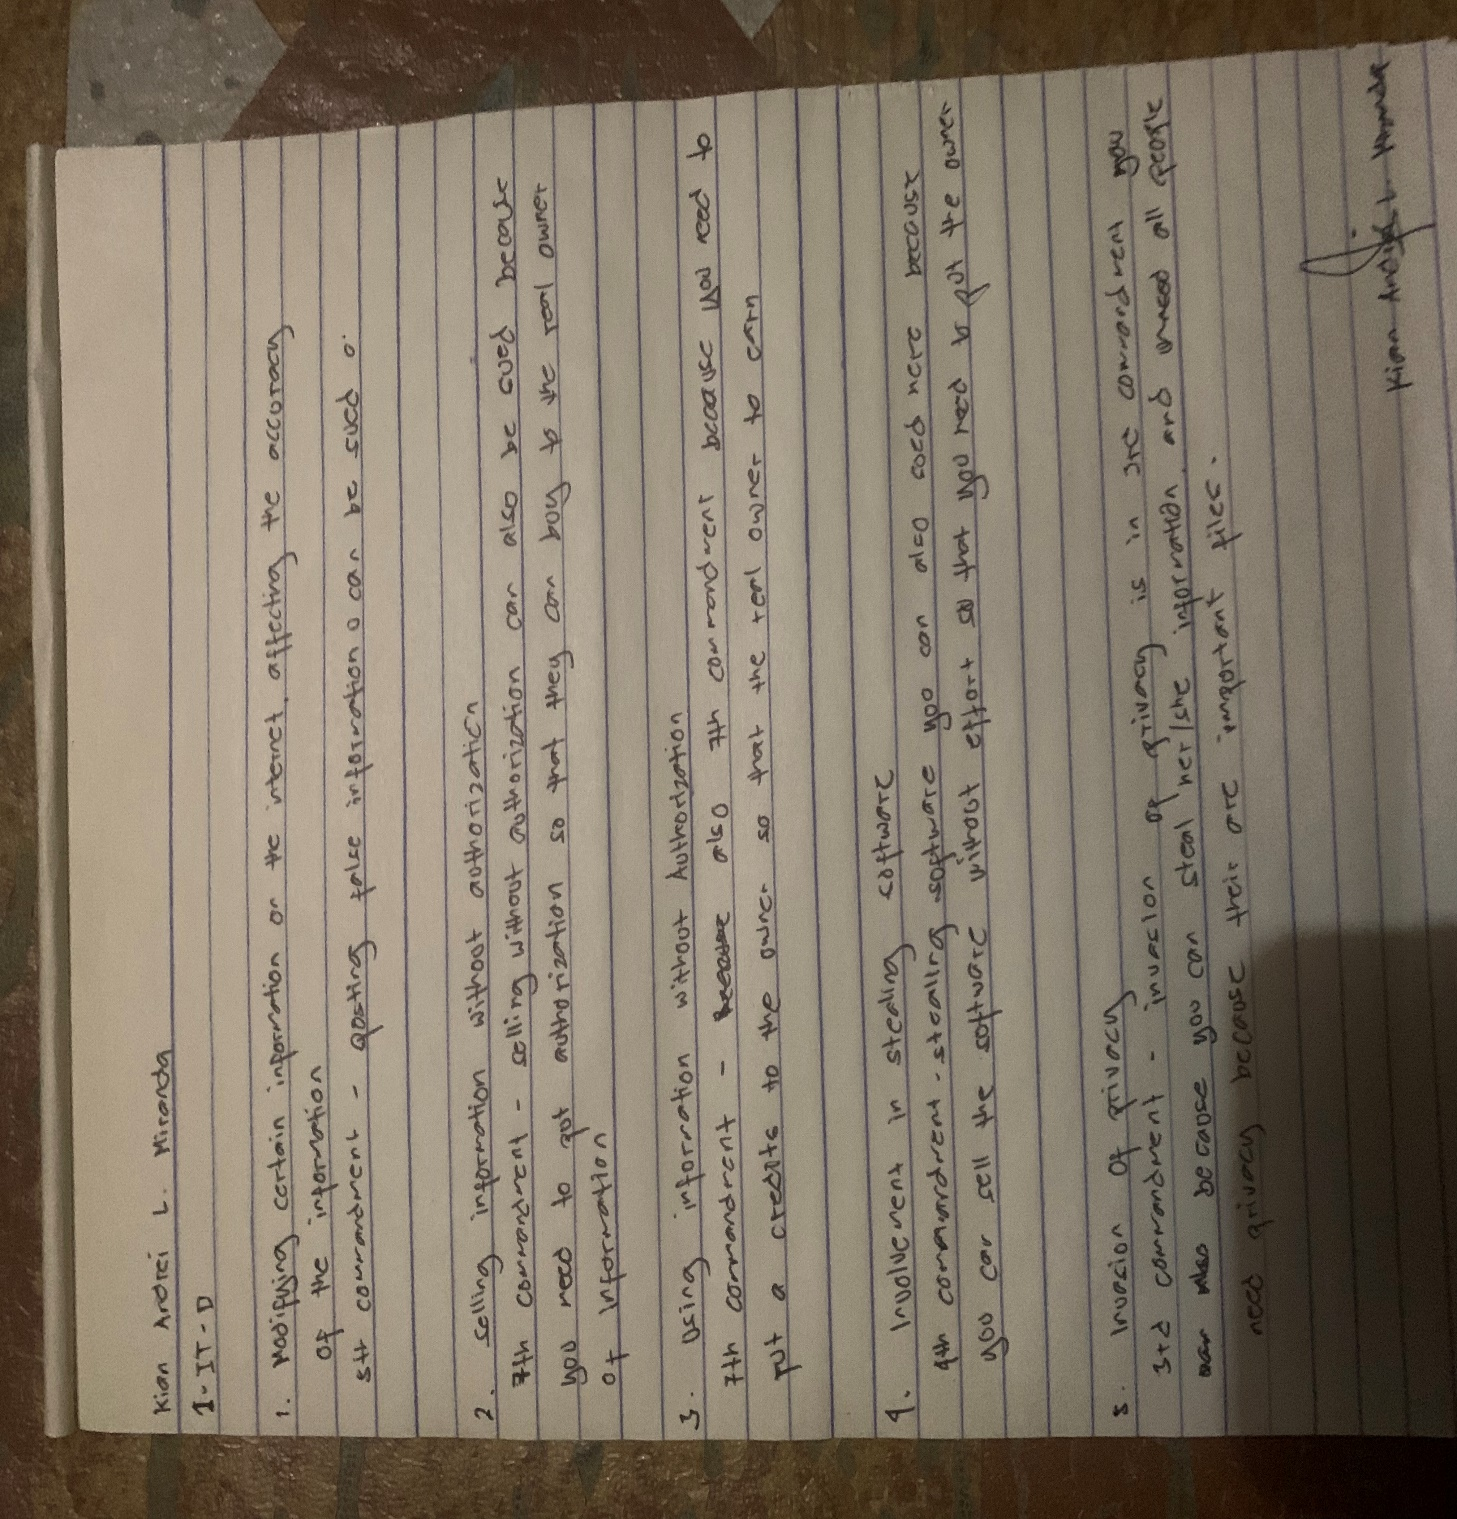 Kian Andrei L. Miranda
1-IT-D
1. Modifying certain information on the internet, affecting the accuracy
of the information
5th commandment - posting false information o can be sued o.
2. selling information without authorization
7th commandment - selling without authorization can also be sued because
you need to put authorization so that they can buy to the real owner
of information
3. Using information without Authorization
7th commandment - also 7th commandment because you need to
put a credits to the owner so that the real owner to earn
4. Involvement in stealing software
4th commandment - stealing software you can also sued here because
you can sell the software without effort so that you need to put the owner
5. Invasion of privacy
3rd commandment - invasion of privacy is in 3rd commandment you
also because you can steal her/she information and need all people
need privacy because their are important files.
Kian Andrei L. Miranda